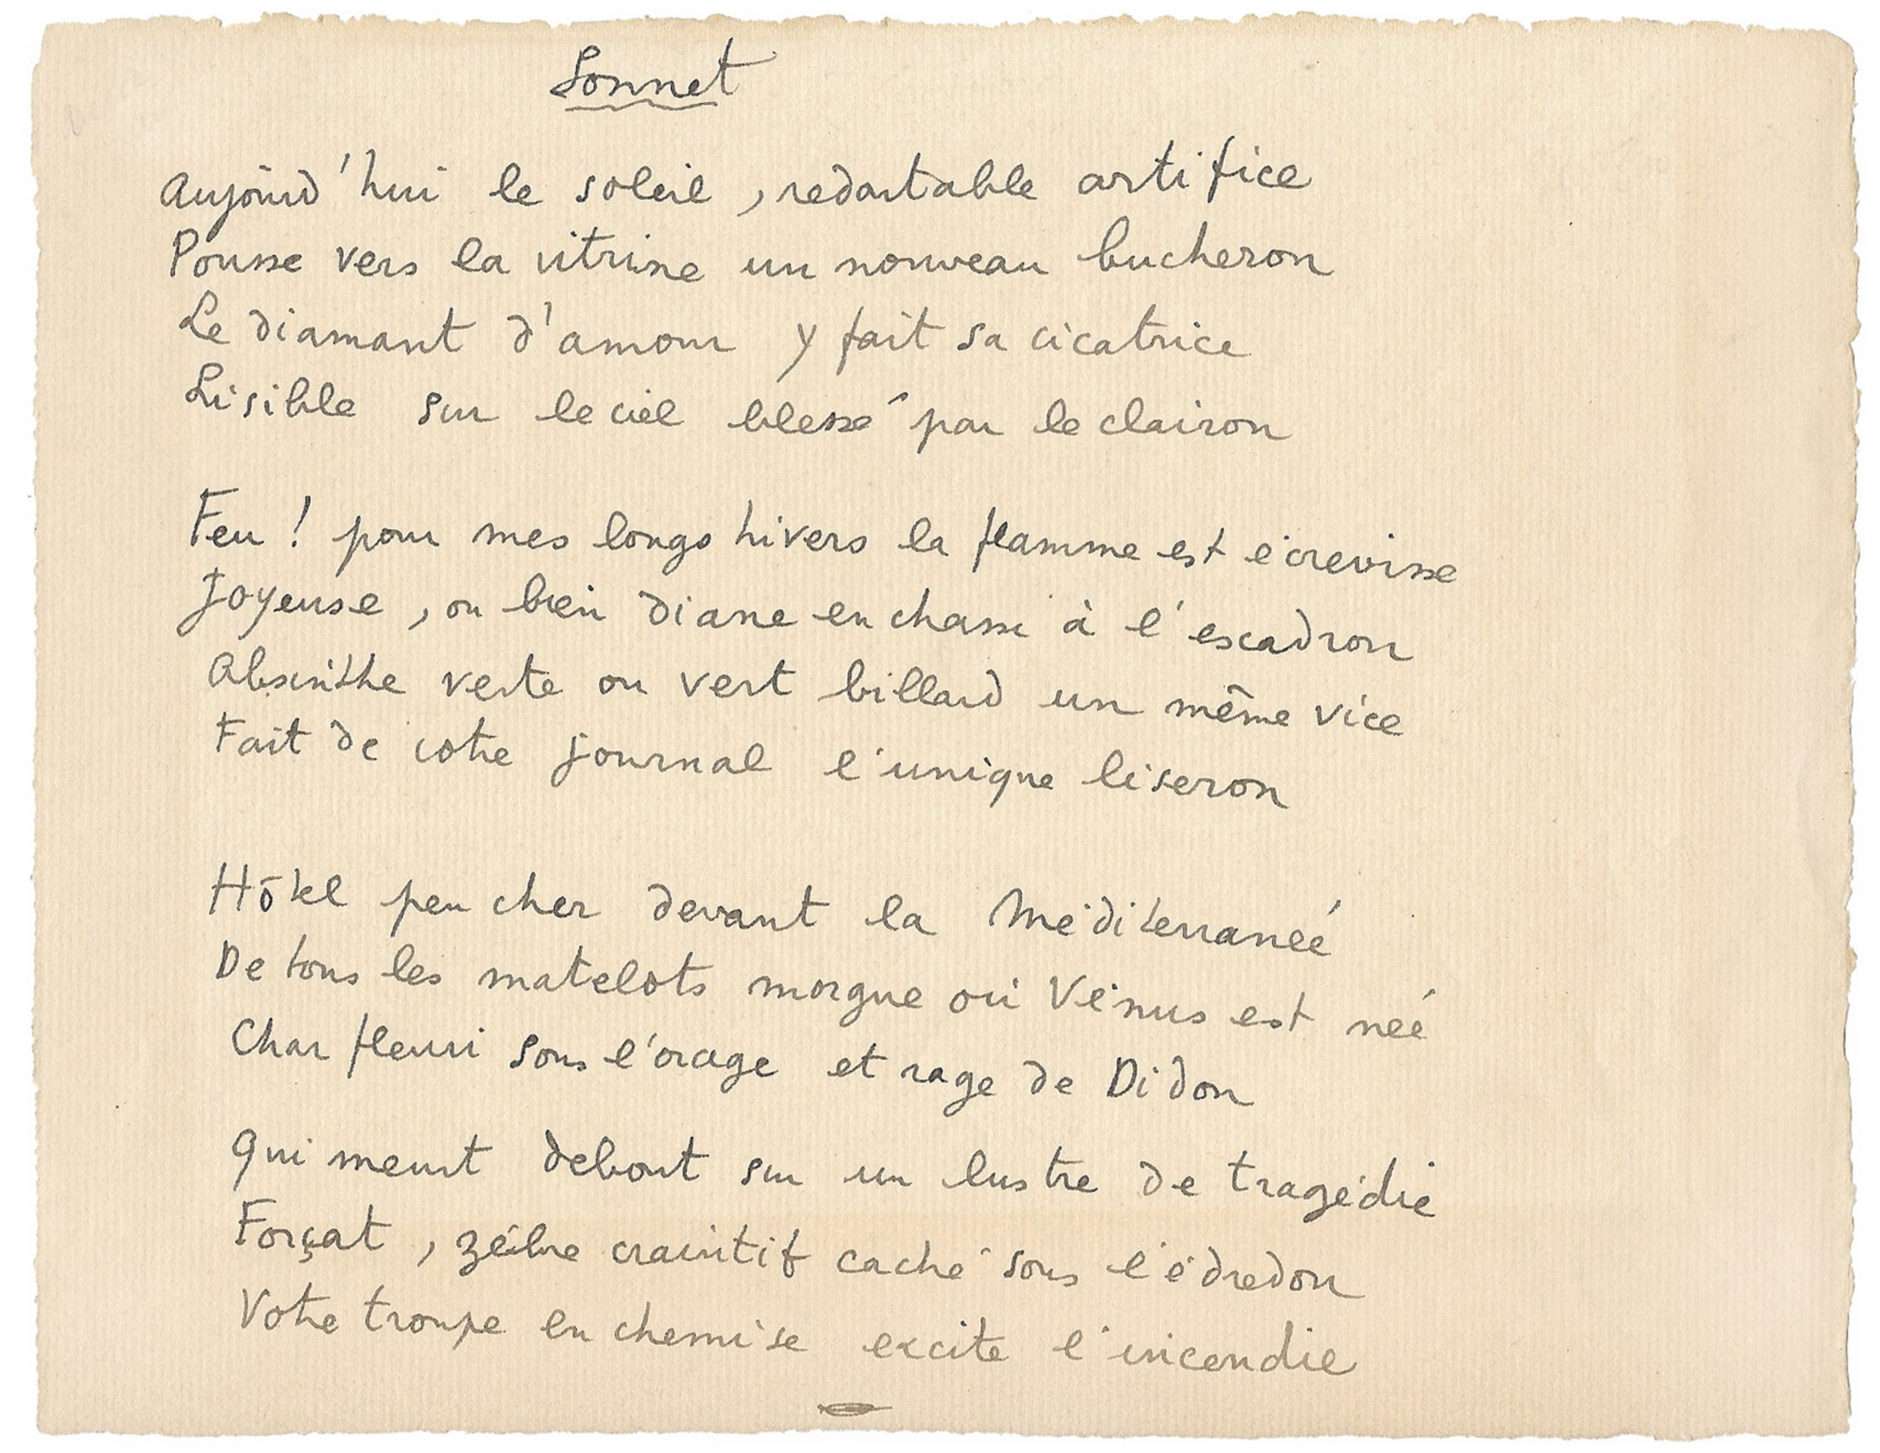 Sonnet
Aujourd'hui le soleil, redoutable artifice
Pousse vers la vitrine un nouveau bucheron
Le diamant d'amour y fait sa cicatrice
Lisible sur le ciel blessé par le clairon
Feu ! pour mes longs hivers la flamme est écrevisse
Joyeuse, ou bien diane en chasse à l'escadron
Absinthe verte ou vert billard un même vice
Fait de votre journal l'unique liseron
Hôtel peu cher devant la Méditerranée
De tous les matelots morgue où Vénus est née
Char fleuri sous l'orage et rage de Didon
Qui meurt debout sur un lustre de tragédie
Forçat, zébre craintif caché sous l'édredon
Votre troupe en chemise excite l'incendie